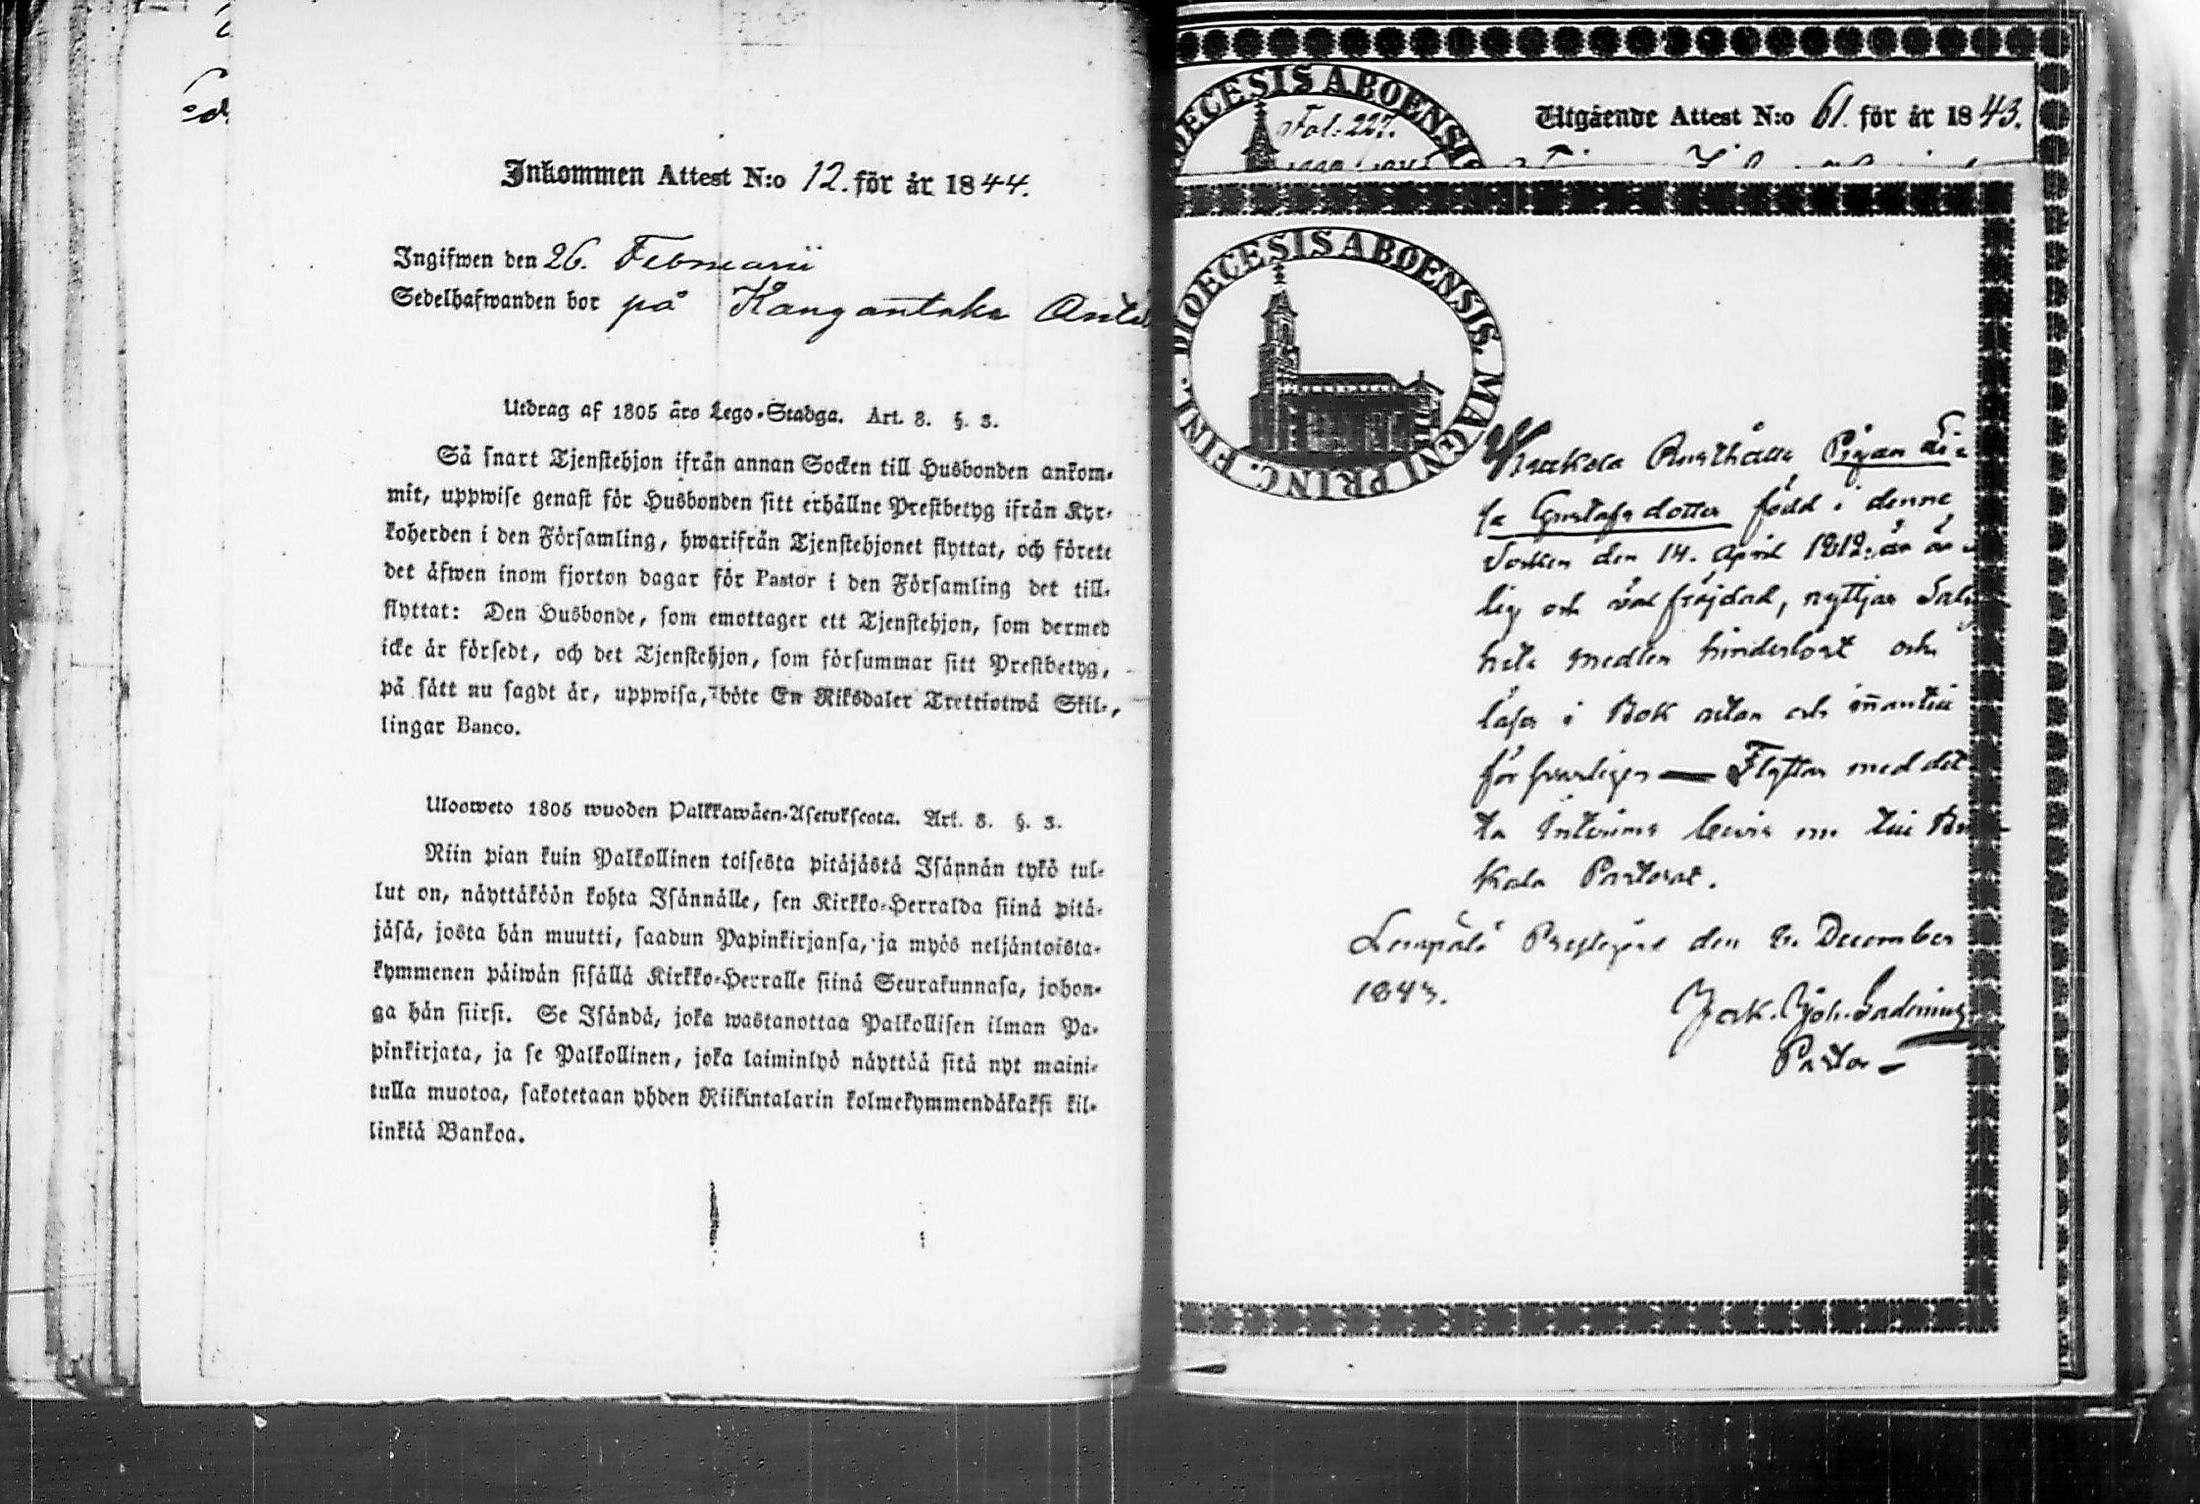 Inkommen Attest N:o 12. för år 1844.
Ingifwen den 26. Februarii
Sedelhafwanden bor på Kangantaka
Utdrag af 1805 års Lego-Stadga. Art. 8. §. 3.
Så snart Tjenstehjon ifrån annan Socken till Husbonden ankom-
mit, uppwise genast för Husbonden sitt erhållne Prestbetyg ifrån Kyr-
koherden i den Församling, hwarifrån Tjenstehjonet flyttat, och förete
det äfwen inom fjorton dagar för Pastor i den Församling det till-
flyttat: Den Husbonde, som emottager ett Tjenstehjon, som dermed
icke är försedt, och det Tjenstehjon, som försummar sitt Prestbetyg,
på sätt nu sagdt är, uppwisa, böte En Riksdaler Trettiotwå Skil-
lingar Banco.
Ulosweto 1805 wuoden Palkkawäen-Asetuksesta. Art. 8. §. 3.
Niin pian kuin Palkollinen toisesta pitäjästä Isännän tykö tul-
lut on, näyttäköön kohta Isännälle, sen Kirkko-Herralda siinä pitä-
jäsä, josta hän muutti, saadun Papinkirjansa, ja myös neljäntoista-
kymmenen päiwän sisällä Kirkko-Herralle siinä Seurakunnasa, johon-
ga hän siirsi. Se Isändä, joka wastanottaa Palkollisen ilman Pa-
pinkirjata, ja se Palkollinen, joka laiminlyö näyttää sitä nyt maini-
tulla muotoa, sakotetaan yhden Riikintalarin kolmekymmendäkaksi kil-
linkiä Bankoa.
DIOECESIS ABOENSIS
Fol. 227.
Utgående Attest N:o 61. för år 1843.
DIOECESIS ABOENSIS. MAGNI PRINC. FINL.
Kuakola Rusthålls Pigan Li-
sa Gustafsdotter född i denne
Socken den 14. April 1812: är är-
lig och väl fräjdad, nyttjar Salig-
hets medlen hinderlöst och
läser i Bok utan och innantill
försvarligen — Flyttar med det-
ta Interims bevis nu till
kala Pastorat.
Lempälä Prestgård den 21. December
1843.
Jak. Joh.
Pastor